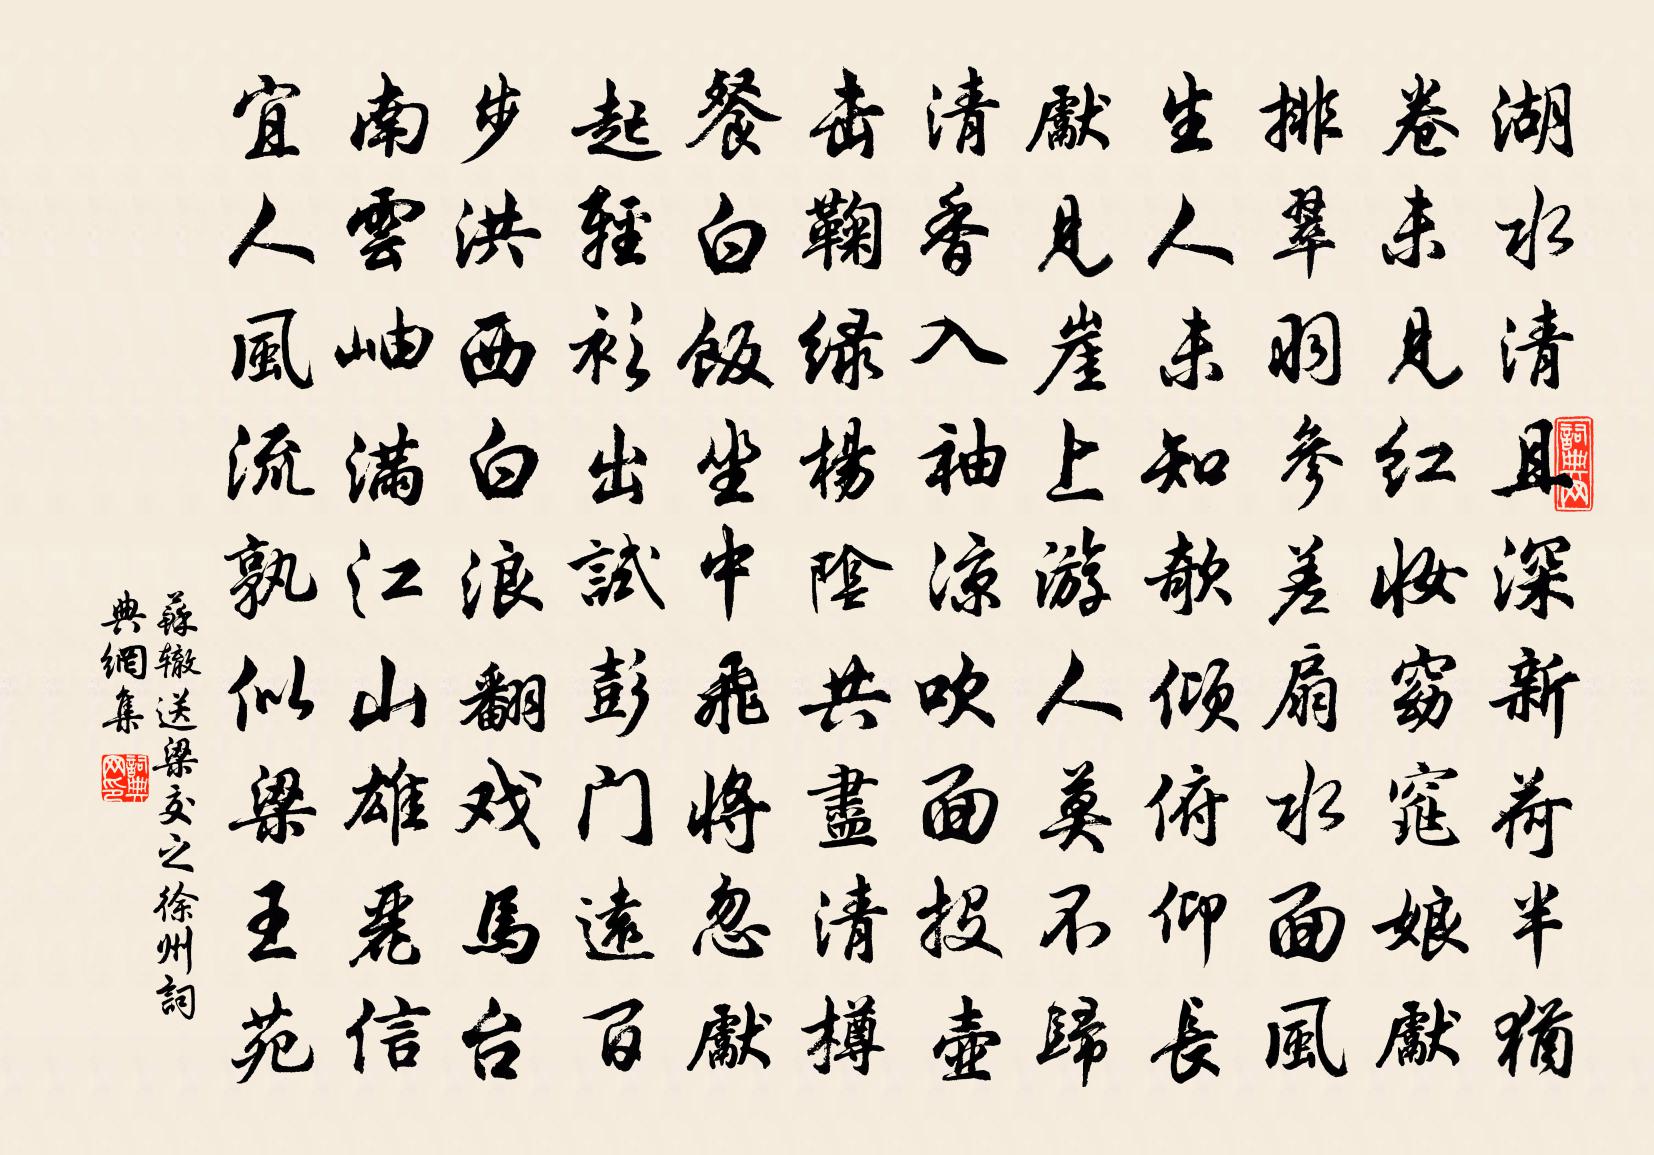 湖水清且深新荷半猶
卷未見红妝窈窕娘獻
排翠羽參差扇水面風
生人未知欹倾俯仰長
獻見崖上游人莫不歸
清香入袖凉吹面投壺
击鞠绿楊陰共盡清樽
餐白飯坐中飛將忽獻
起輕衫出試彭门遠百
步洪西白浪翻戏馬台
南雲岫滿江山雄麗信
宜人風流孰似梁王苑
蘇辙送梁交之徐州詞
典網集
詞典网
詞典网印